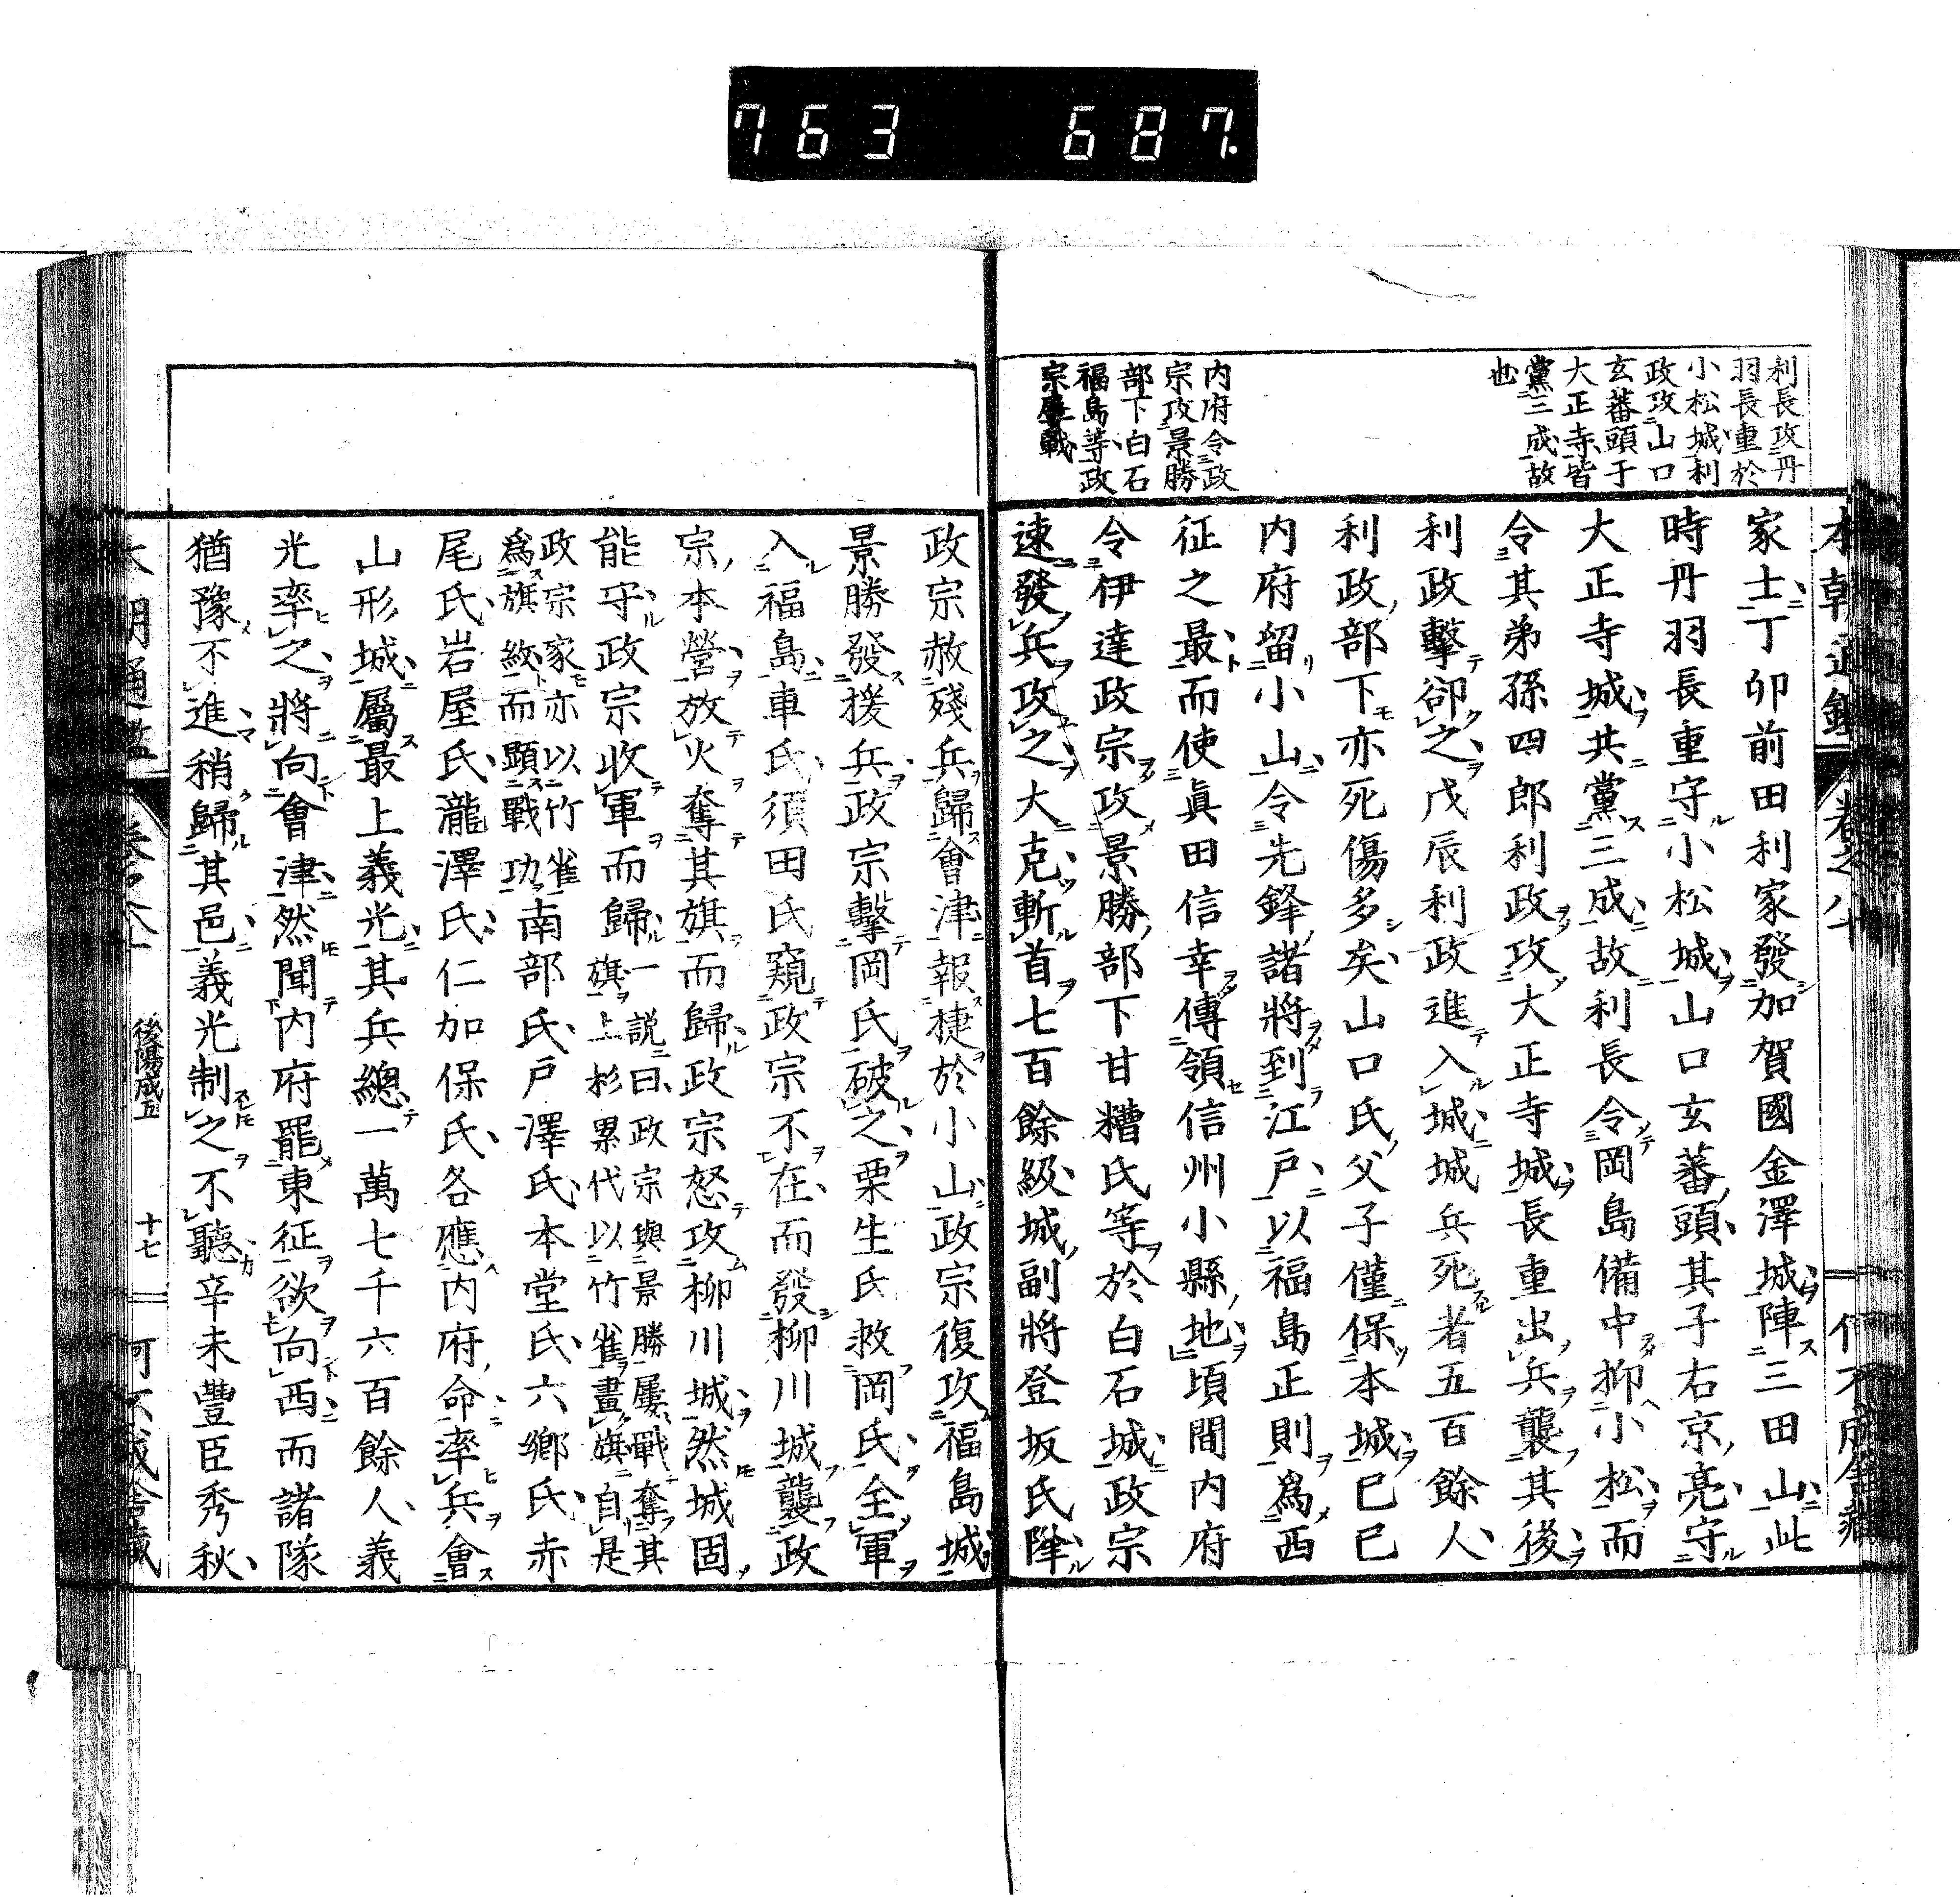 763 687.
利長攻丹
羽長重於
小松城利
政攻山口
玄蕃頭于
大正寺皆
黨三成故
也
内府令政
宗攻景勝
部下白石
福島等政
宗屢戰
家士丁卯前田利家發加賀國金澤城陣三田山此
時丹羽長重守小松城山口玄蕃頭其子右京亮守
大正寺城共黨三成故利長令岡島備中抑小松而
令其弟孫四郎利政攻大正寺城長重出兵襲其後
利政擊卻之戊辰利政進入城城兵死者五百餘人
利政部下亦死傷多矣山口氏父子僅保本城己巳
内府留小山令先鋒諸將到江戸以福島正則爲西
征之最而使眞田信幸傳領信州小縣地頃間内府
令伊達政宗攻景勝部下甘糟氏等於白石城政宗
速發兵攻之大克斬首七百餘級城副將登坂氏降
政宗赦殘兵歸會津報捷於小山政宗復攻福島城
景勝發援兵政宗擊岡氏破之栗生氏救岡氏全軍
入福島車氏須田氏窺政宗不在而發柳川城襲政
宗本營放火奪其旗而歸政宗怒攻柳川城然城固
能守政宗收軍而歸一説曰政宗與景勝屢戰奪其
旗上杉累代以竹雀畫旗自是
政宗家亦以竹雀
爲旗紋而顯戰功南部氏戸澤氏本堂氏六鄉氏赤
尾氏岩屋氏瀧澤氏仁加保氏各應内府命率兵會
山形城屬最上義光其兵總一萬七千六百餘人義
光率之將向會津然聞内府罷東征欲向西而諸隊
猶豫不進稍歸其邑義光制之不聽辛未豐臣秀秋
後陽成五
十七